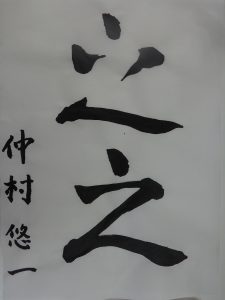 之
仲村悠一